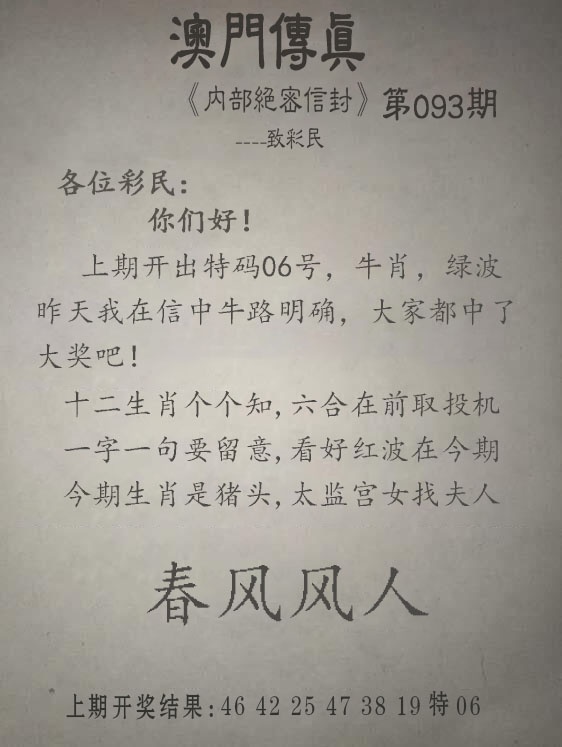 澳門傳眞
《内部絕密信封》第093期
----致彩民
各位彩民：
你们好！
上期开出特码06号，牛肖，绿波
昨天我在信中牛路明确，大家都中了
大奖吧！
十二生肖个个知,六合在前取投机
一字一句要留意,看好红波在今期
今期生肖是猪头,太监宫女找夫人
春风风人
上期开奖结果:46 42 25 47 38 19 特 06